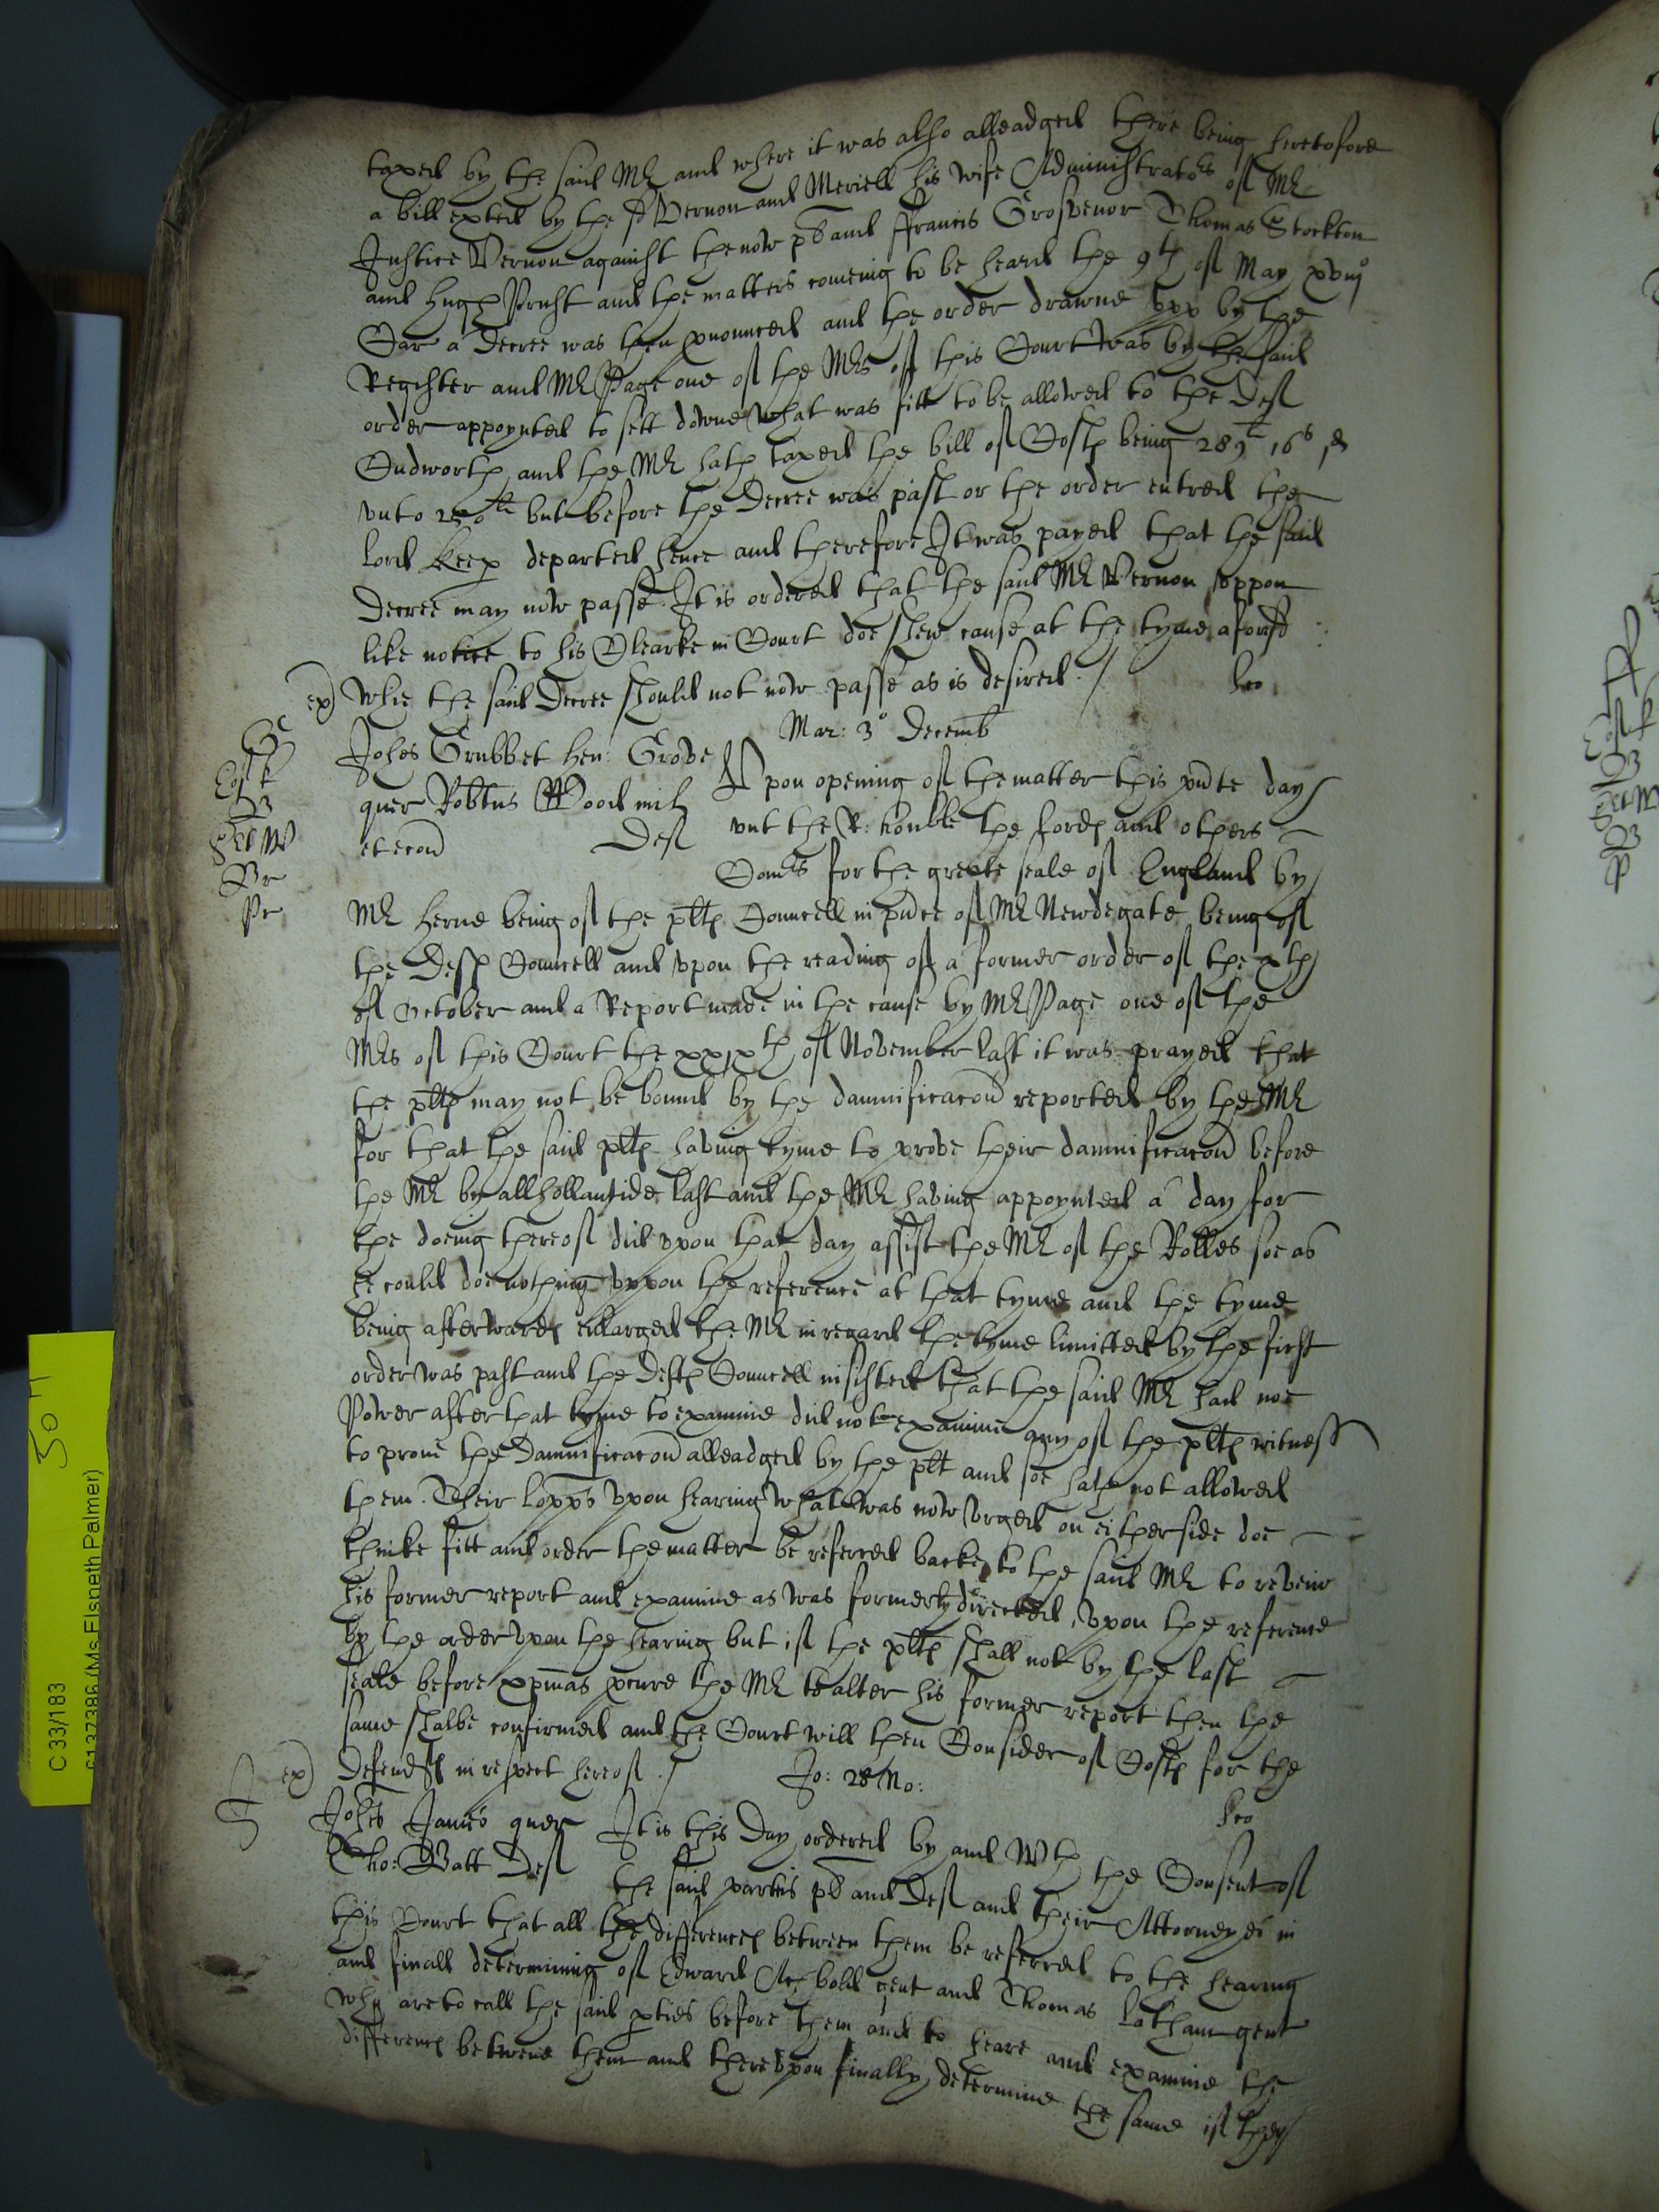 taxed by the said Mr and where it was also alleadged there being heretofore
a bill exħted by the sd Vernon and Meriell his wife Administrators of Mr
Justice Vernon against the now pl and ffrancis Grosvenor Thomas Stockton
and Hugh and the matters comeing to be heard the 9th of May xviijo
Car a decree was then pnounced and the order drawne upp by the
Register and Mr Page one of the Mrs of this Court was by the said
order appoynted to sett downe what was fitt to be allowed to the Def
Cudworth and the Mr hath taxed the bill of Costs being 289li 16s
unto li but before the decree was past or the order entred the
lord keep departed hence and therefore It was payed that the said
decree may now passe. It is ordered that the said Mr Vernon uppon
like notice to his Clearke in Court doe shew cause at the tyme aforesd
ex) whie the said decree should not now passe as is desired /
Mar: 3o Decemb
Johes Grubbet Hen: Grove
quer Robtus Wood mil
et econ Def
Upon opening of the matter this pnte day
unt the R: honble the lords and others
Comrs for the greate seale of England by
Mr Herne being of the pltfs Councell in pnce of Mr Newdegate being of
the Defts Councell and upon the reading of a former order of the xth
of October and a Report made in the cause by Mr Page one of the
Mrs of this Court the xxixth of November last it was prayed that
the pltfs may not be bound by the damnificacon reported by the Mr
for that the said pltfs having tyme to prove their damnificacon before
the Mr by allhollantide last and the Mr having appoynted a day for
the doeing thereof did upon that day assist the Mr of the Rolles soe as
he could doe nothing uppon the reference at that tyme and the tyme
being afterwards enlarged the Mr in regard the tyme limitted by the first
order was past and the Defts Councell insisted that the said Mr had noe
Power after that tyme to examine did not examine any of the pltfs witness
to prove the Damnificacon alleadged by the plt and soe hath not allowed
them. Their Lopps upon hearing what was now urged on either side doe
thinke fitt and order the matter be referred backe to the said Mr to reveiw
his former report and examine as was formerly directed upon the reference
by the order upon the hearing but if the pltfs shall not by the last
seale before xpmas pcure the Mr to alter his former report then the
same shalbe confirmed and the Court will then Consider of Costs for the
ex) Defendts in respect hereof /
Jo: 28 No:
Johes James quer
Tho: Batt Def
It is this Day ordered by and wth the Consent of
the said parties pl and Def and their Attorneyes in
this Court that all the differences between them be referred to the hearing
and finall determining of Edward Archbold gent and Thomas Latham gent
who are to call the said pties before them and to heare and examine the
differences betweene them and thereupon finally determine the same if they
C 33/183
(Ms Elspeth Palmer)